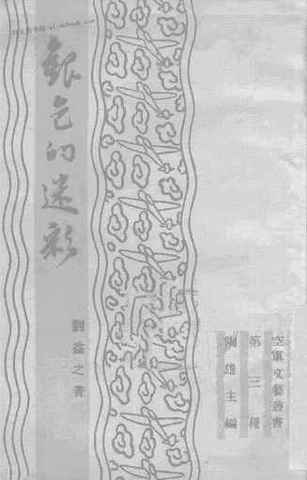 空軍文藝叢書
第三種
陶雄主編
銀色的迷彩
劉益之著